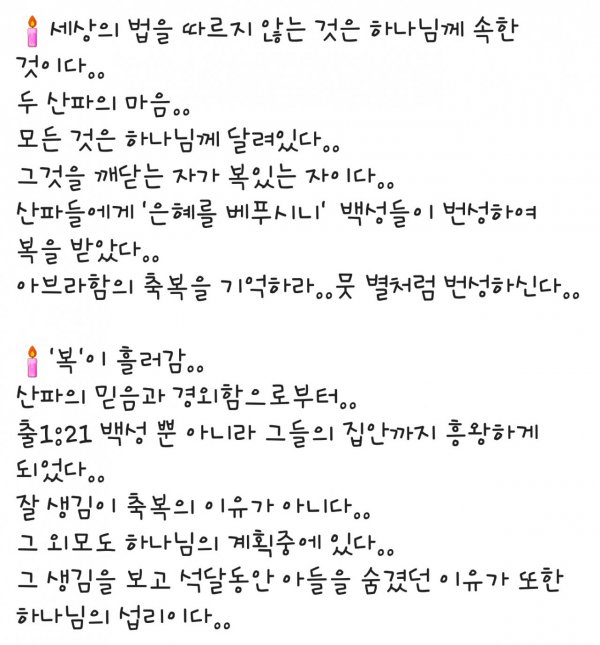 🕯️세상의 법을 따르지 않는 것은 하나님께 속한
것이다。。
두 산파의 마음。。
모든 것은 하나님께 달려있다。。
그것을 깨닫는 자가 복있는 자이다。。
산파들에게 '은혜를 베푸시니' 백성들이 번성하여
복을 받았다。。
아브라함의 축복을 기억하라。。뭇 별처럼 번성하신다。。

🕯️'복'이 흘러감。。
산파의 믿음과 경외함으로부터。。
출1:21 백성 뿐 아니라 그들의 집안까지 흥왕하게
되었다。。
잘 생김이 축복의 이유가 아니다。。
그 외모도 하나님의 계획중에 있다。。
그 생김을 보고 석달동안 아들을 숨겼던 이유가 또한
하나님의 섭리이다。。